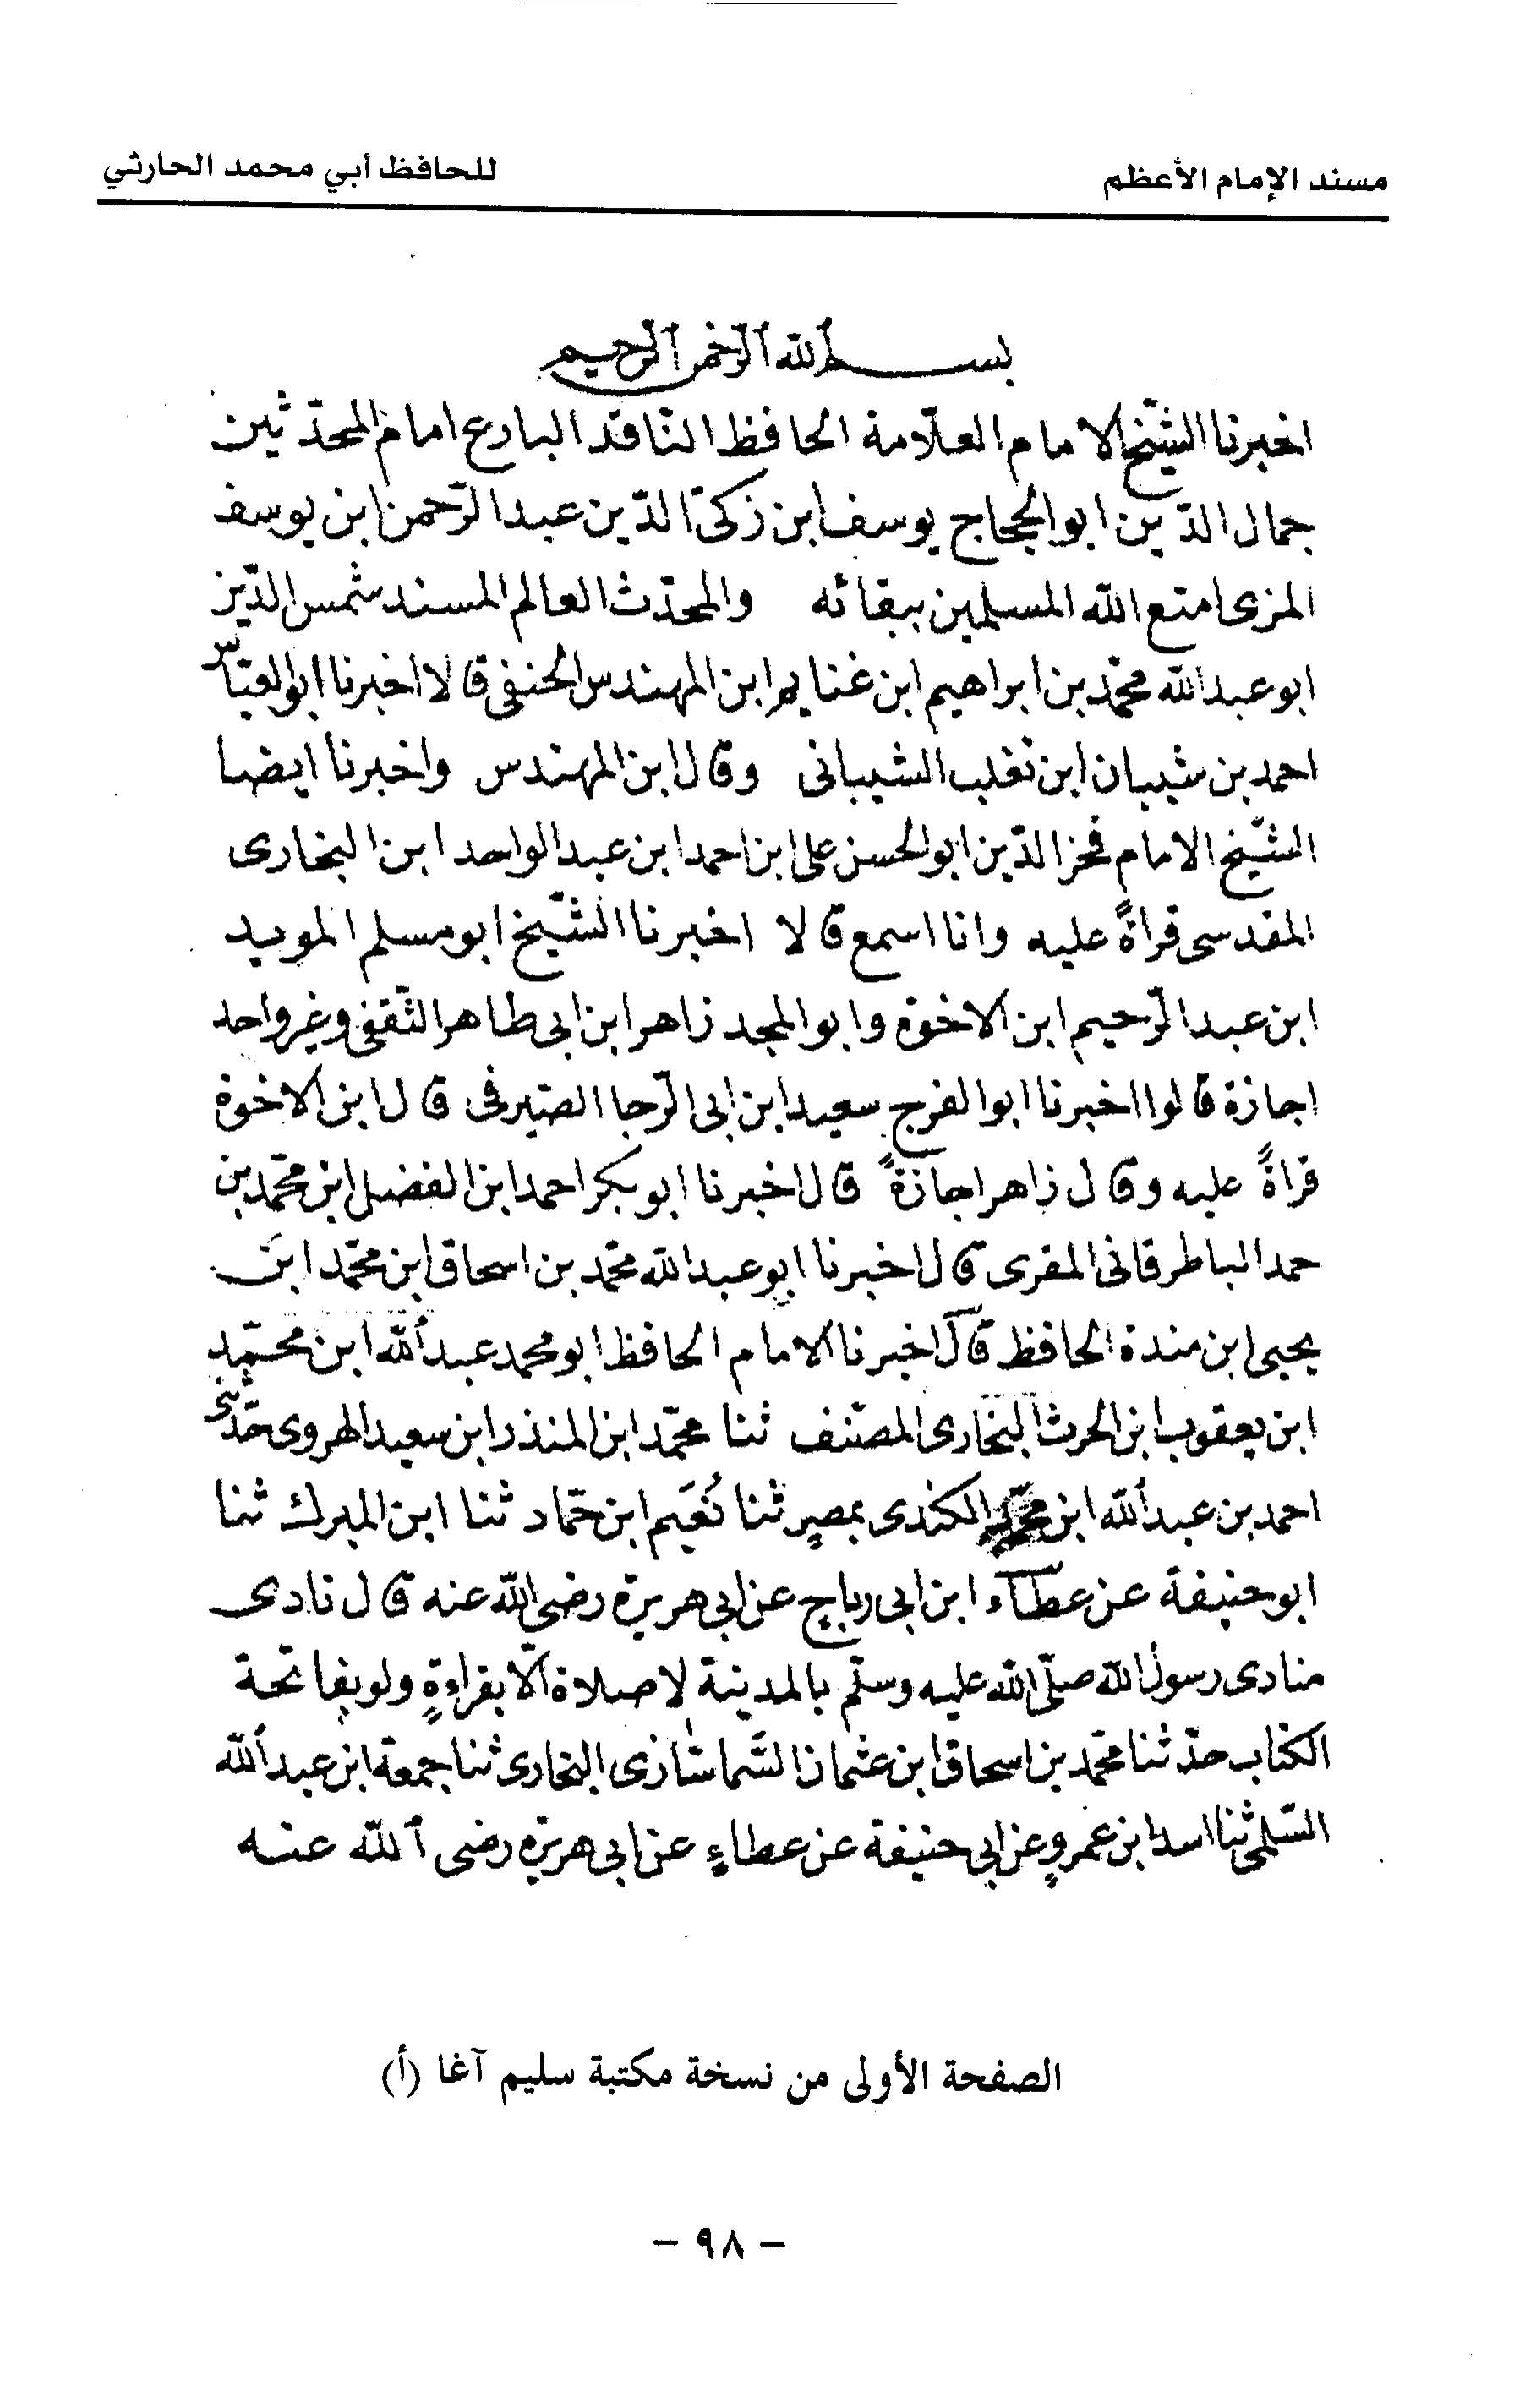 مسند الإمام الأعظم
للحافظ أبي محمد الحارثي
بسم الله الرحمن الرحيم
اخبرنا الشيخ الامام العلّامة الحافظ الناقد البارع امام المحدّثين
جمال الدّين ابو الحجاج يوسف ابن زكىّ الدّين عبد الرّحمن ابن يوسف
المزى امتع الله المسلمين ببقائه والمحدّث العالم المسند شمس الدّين
ابو عبد الله محمّد بن ابراهيم ابن غنايم ابن المهندس الحنفى قالا اخبرنا ابو العبّاس
احمد بن شيبان ابن تغلب الشيبانى وقال ابن المهندس واخبرنا ايضا
الشّيخ الامام فخر الدّين ابو الحسن على ابن احمد ابن عبد الواحد ابن البخارى
المقدسى قراةً عليه وانا اسمع قالا اخبرنا الشّيخ ابو مسلم المويد
ابن عبد الرّحيم ابن الاخوة وابو المجد زاهر ابن ابى طاهر الثّقفى وغير واحد
اجازة قالوا اخبرنا ابو الفرج سعيد ابن ابى الرّجا الصّيرفى قال ابن الاخوة
قراةً عليه وقال زاهر اجازةً قال اخبرنا ابو بكر احمد ابن الفضل ابن محمّد بن
حمد الباطرقانى المقرى قال اخبرنا ابو عبد الله محمّد بن اسحاق ابن محمّد ابن
يحيى ابن مندة الحافظ قال اخبرنا الامام الحافظ ابو محمد عبد الله ابن محمّد
ابن يعقوب ابن الحرث البخارى المصنّف ثنا محمّد ابن المنذر ابن سعيد الهروى حدّثنى
احمد بن عبد الله ابن محمد الكندى بمصرٍ ثنا نُعَيم ابن حمّاد ثنا ابن المبرك ثنا
ابو حنيفة عن عطآء ابن ابى رباح عن ابى هريرة رضى الله عنه قال نادى
منادى رسول الله صلّى الله عليه وسلّم بالمدينة لا صلاة الّا بقراءةٍ ولو بفاتحة
الكتاب حدّثنا محمّد بن اسحاق ابن عثمان السَّماشازى البخارى ثنا جمعة ابن عبد الله
السّلمى ثنا اسد ابن عمروٍ عن ابى حنيفة عن عطاءٍ عن ابى هريرة رضى الله عنه
الصفحة الأولى من نسخة مكتبة سليم آغا (أ)
- ٩٨ -